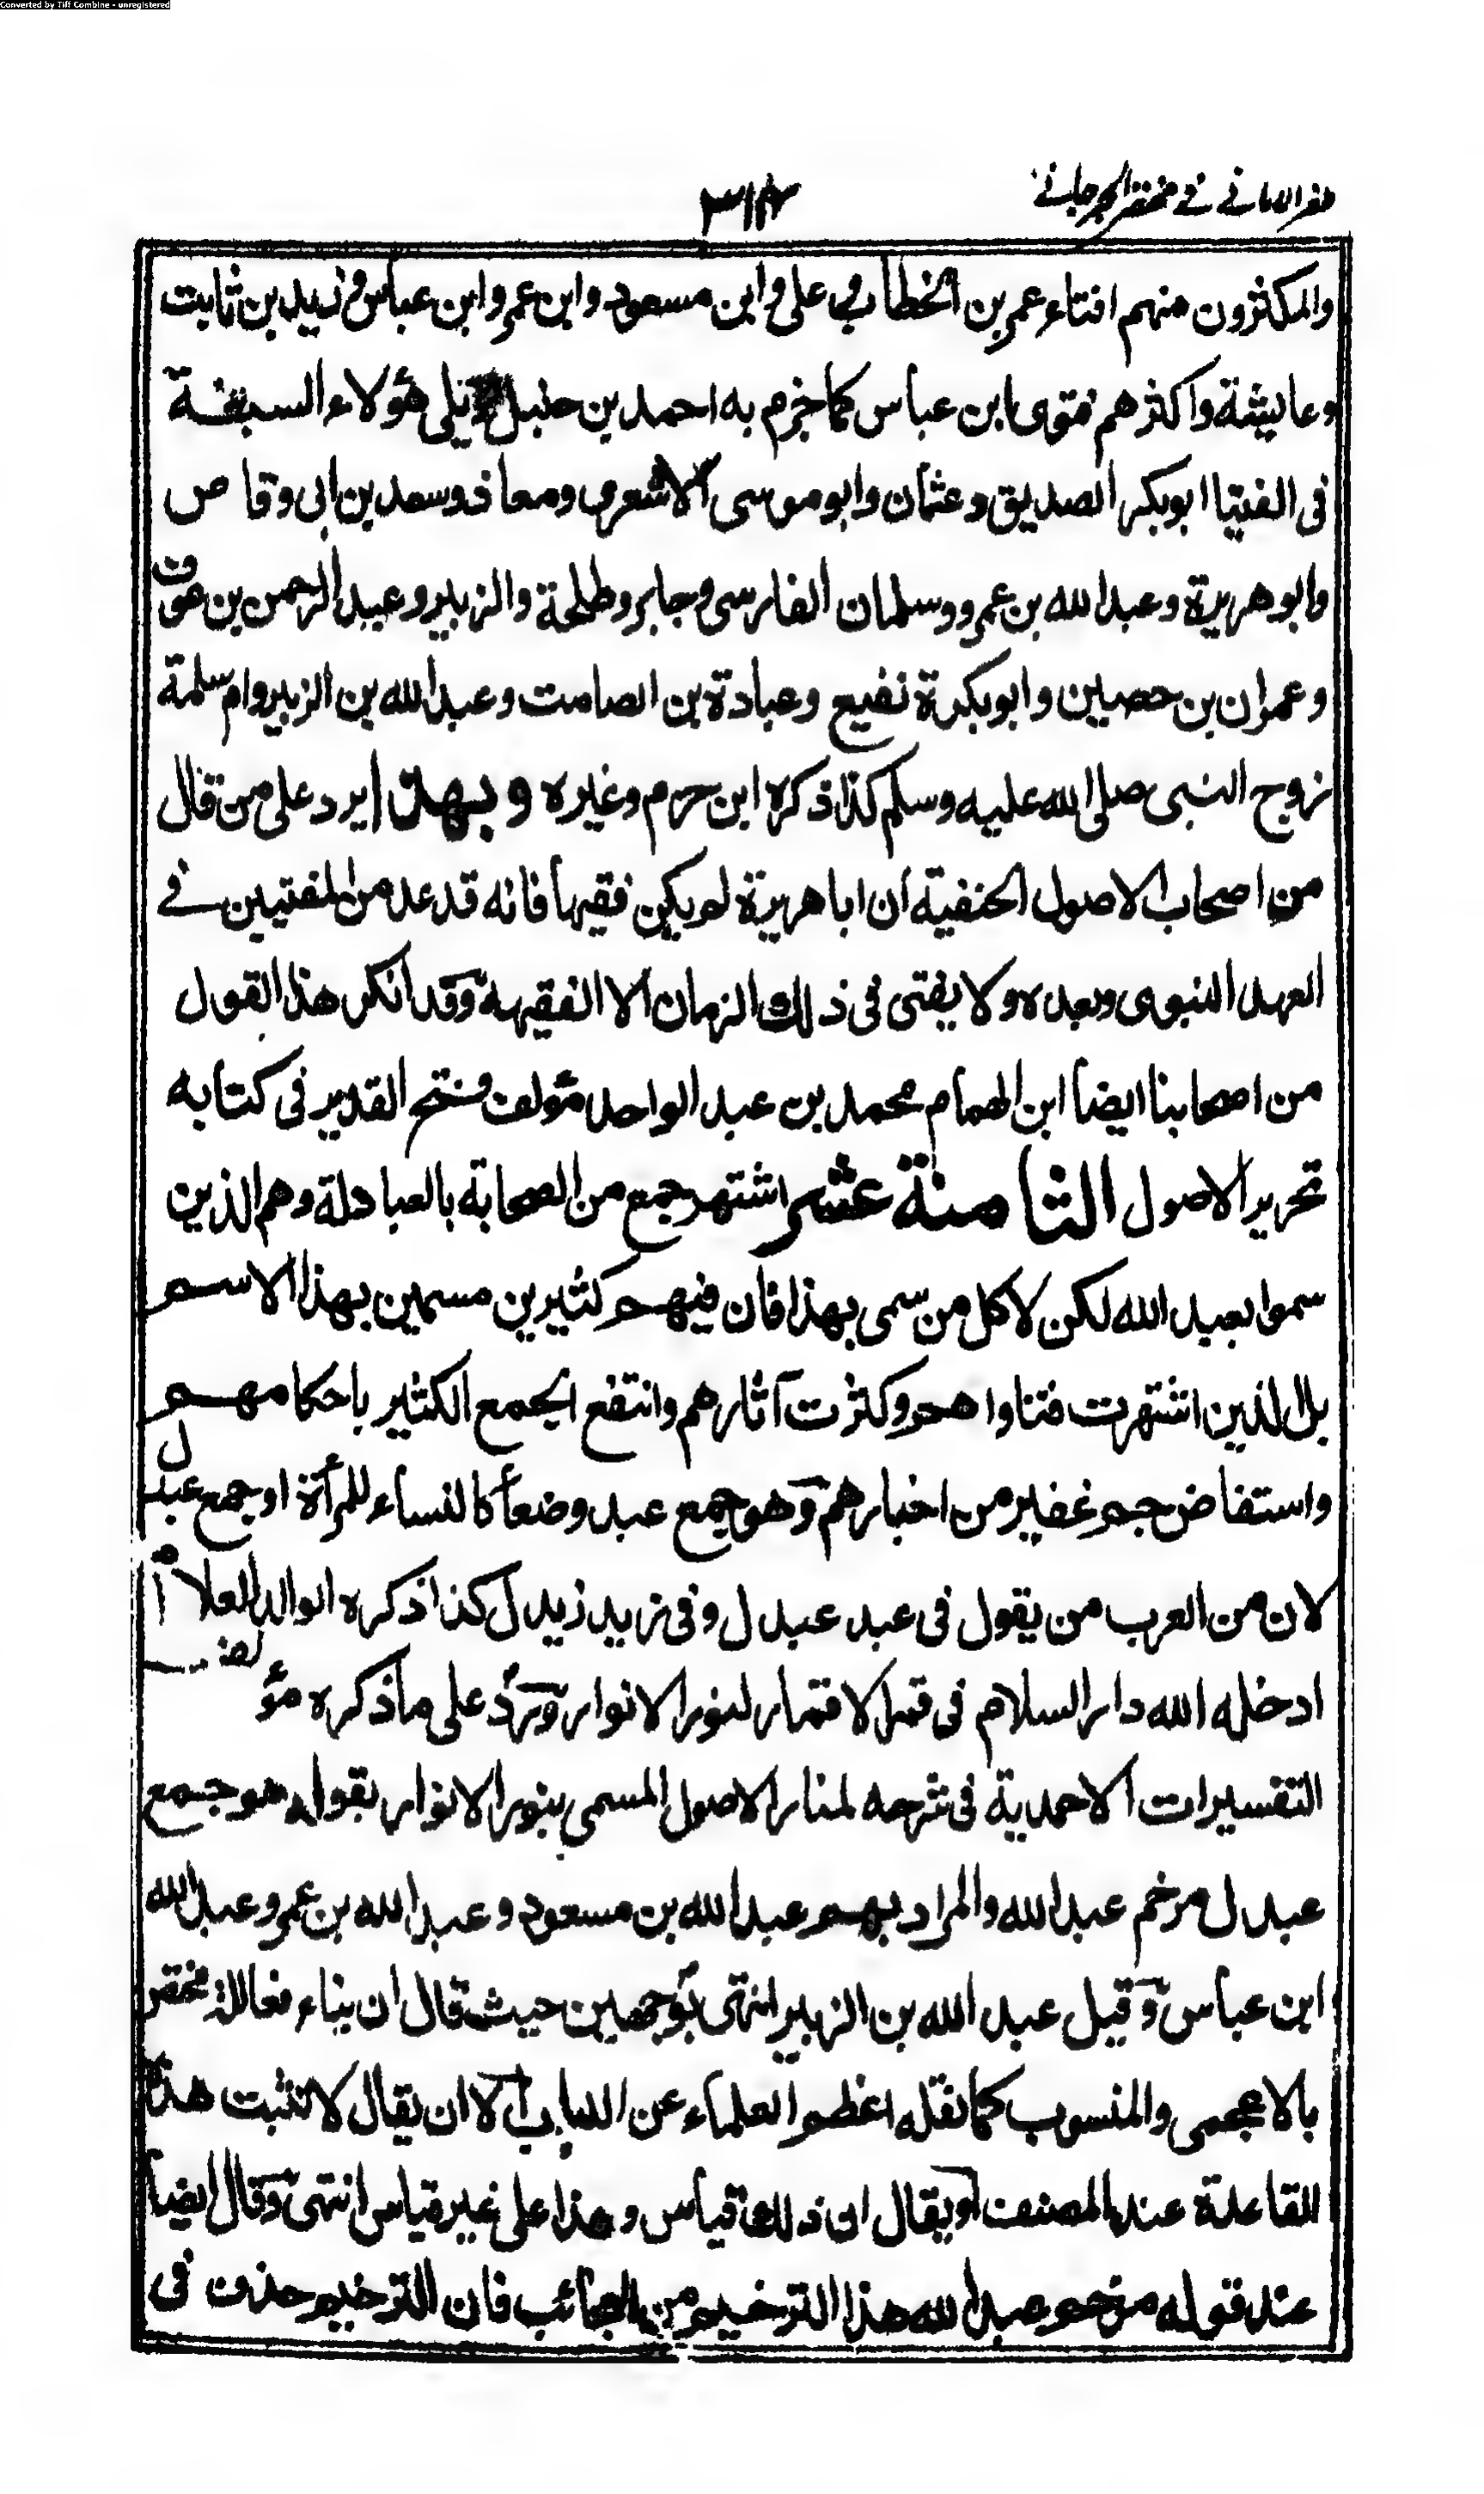 Converted by Tiff Combine - unregistered
ظفر الامانی فی مختصر الجرجانی
والمکثرون منهم افتاء عمر بن الخطاب وعلی وابن مسعود وابن عمر وابن عباس وزید بن ثابت
وعایشة واکثرهم فتوی ابن عباس کما جزم به احمد بن حنبل ویلی هؤلاء السبعة
فی الفتیا ابوبکر الصدیق وعثمان وابو موسی الاشعری ومعاذ وسعد بن ابی وقاص
وابو هریرة وعبد الله بن عمرو وسلمان الفارسی وجابر وطلحة والزبیر وعبد الرحمن بن عوف
وعمران بن حصین وابو بکرة نفیع وعبادة بن الصامت وعبد الله بن الزبیر وام سلمة
زوج النبی صلی الله علیه وسلم کذا ذکره ابن حزم وغیره وبهذا یرد علی من قال
من اصحاب الاصول الحنفیة ان ابا هریرة لم یکن فقیها فانه قد عد من المفتیین فی
العهد النبوی وبعده ولا یفتی فی ذلك الزمان الا الفقیه وقد انکر هذا القول
من اصحابنا ایضا ابن الهمام محمد بن عبد الواحد مؤلف فتح القدیر فی کتابه
تحریر الاصول الثامنة عشر اشتهر جمع من الصحابة بالعبادلة وهم الذین
سموا بعبد الله لکن لا کل من سمی بهذا فان فیهم کثیرین مسمین بهذا الاسم
بل الذین اشتهرت فتاواهم وکثرت آثارهم وانتفع الجمع الکثیر باحکامهم
واستفاض جم غفیر من اخبارهم وهو جمع عبد وضعا کالنساء للمرأة او جمع عبدل
لان من العرب من یقول فی عبد عبدل وفی زید زیدل کذا ذکره الوالد العلام
ادخله الله دار السلام فی قمر الاقمار لنور الانوار ویرد علی ما ذکره مؤلف
التفسیرات الاحمدیة فی شرحه لمنار الاصول المسمی بنور الانوار بقوله هو جمع
عبدل مرخم عبد الله والمراد بهم عبد الله بن مسعود وعبد الله بن عمر وعبد الله
ابن عباس وقیل عبد الله بن الزبیر انتهی بوجهین حیث قال ان بناء فعاللة مختص
بالاعجمی والمنسوب کما نقله اعظم العلماء عن اللباب الا ان یقال لا تثبت هذه
القاعدة عند المصنف او یقال ان ذلك قیاس وهذا علی غیر قیاس انتهی وقال ایضا
عند قوله مرخم عبد الله هذا الترخیم من العجائب فان الترخیم حذف فی